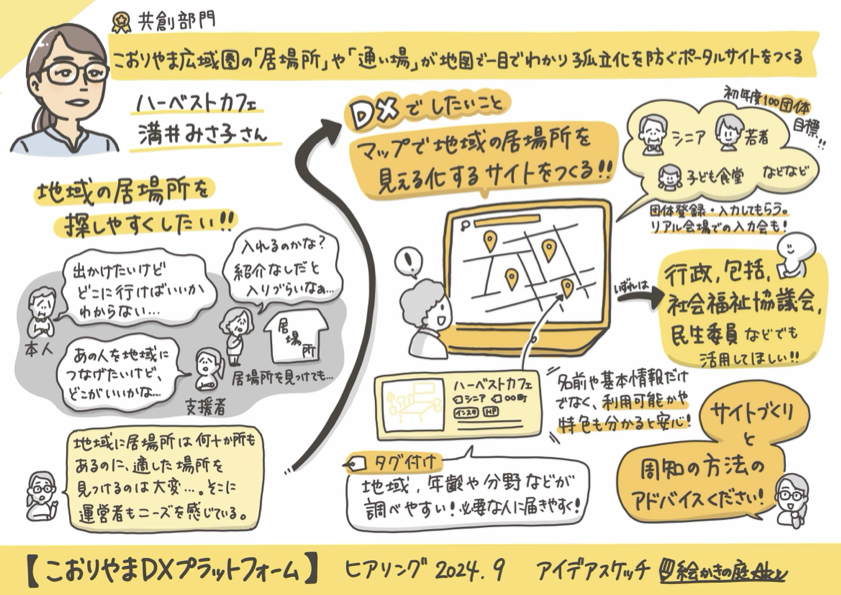 共創部門
こおりやま広域圏の「居場所」や「通い場」が地図で一目でわかり孤立化を防ぐポータルサイトをつくる
ハーベストカフェ
満井みさ子さん
地域の居場所を
探しやすくしたい!!
出かけたいけど
どこに行けばいいか
わからない…
本人
入れるのかな?
紹介なしだと
入りづらいなぁ…
居場所
居場所を見つけても…
あの人を地域に
つなげたいけど、
どこがいいかな…
支援者
地域に居場所は何十か所も
あるのに、適した場所を
見つけるのは大変…。そこに
運営者もニーズを感じている。
DXでしたいこと
マップで地域の居場所を
見える化するサイトをつくる!!
初年度100団体
目標!!
シニア
若者
子ども食堂 などなど
団体登録・入力してもらう。
リアル会場での入力会も!
いずれは
行政,包括,
社会福祉協議会,
民生委員などでも
活用してほしい!!
ハーベストカフェ
シニア 〇〇町
インスタ HP
名前や基本情報だけ
でなく、利用可能かや
特色も分かると安心!
タグ付け
地域,年齢や分野などが
調べやすい!必要な人に届きやすく!
サイトづくり
と
周知の方法の
アドバイスください!
【こおりやまDXプラットフォーム】 ヒアリング 2024.9 アイデアスケッチ 絵かきの庭